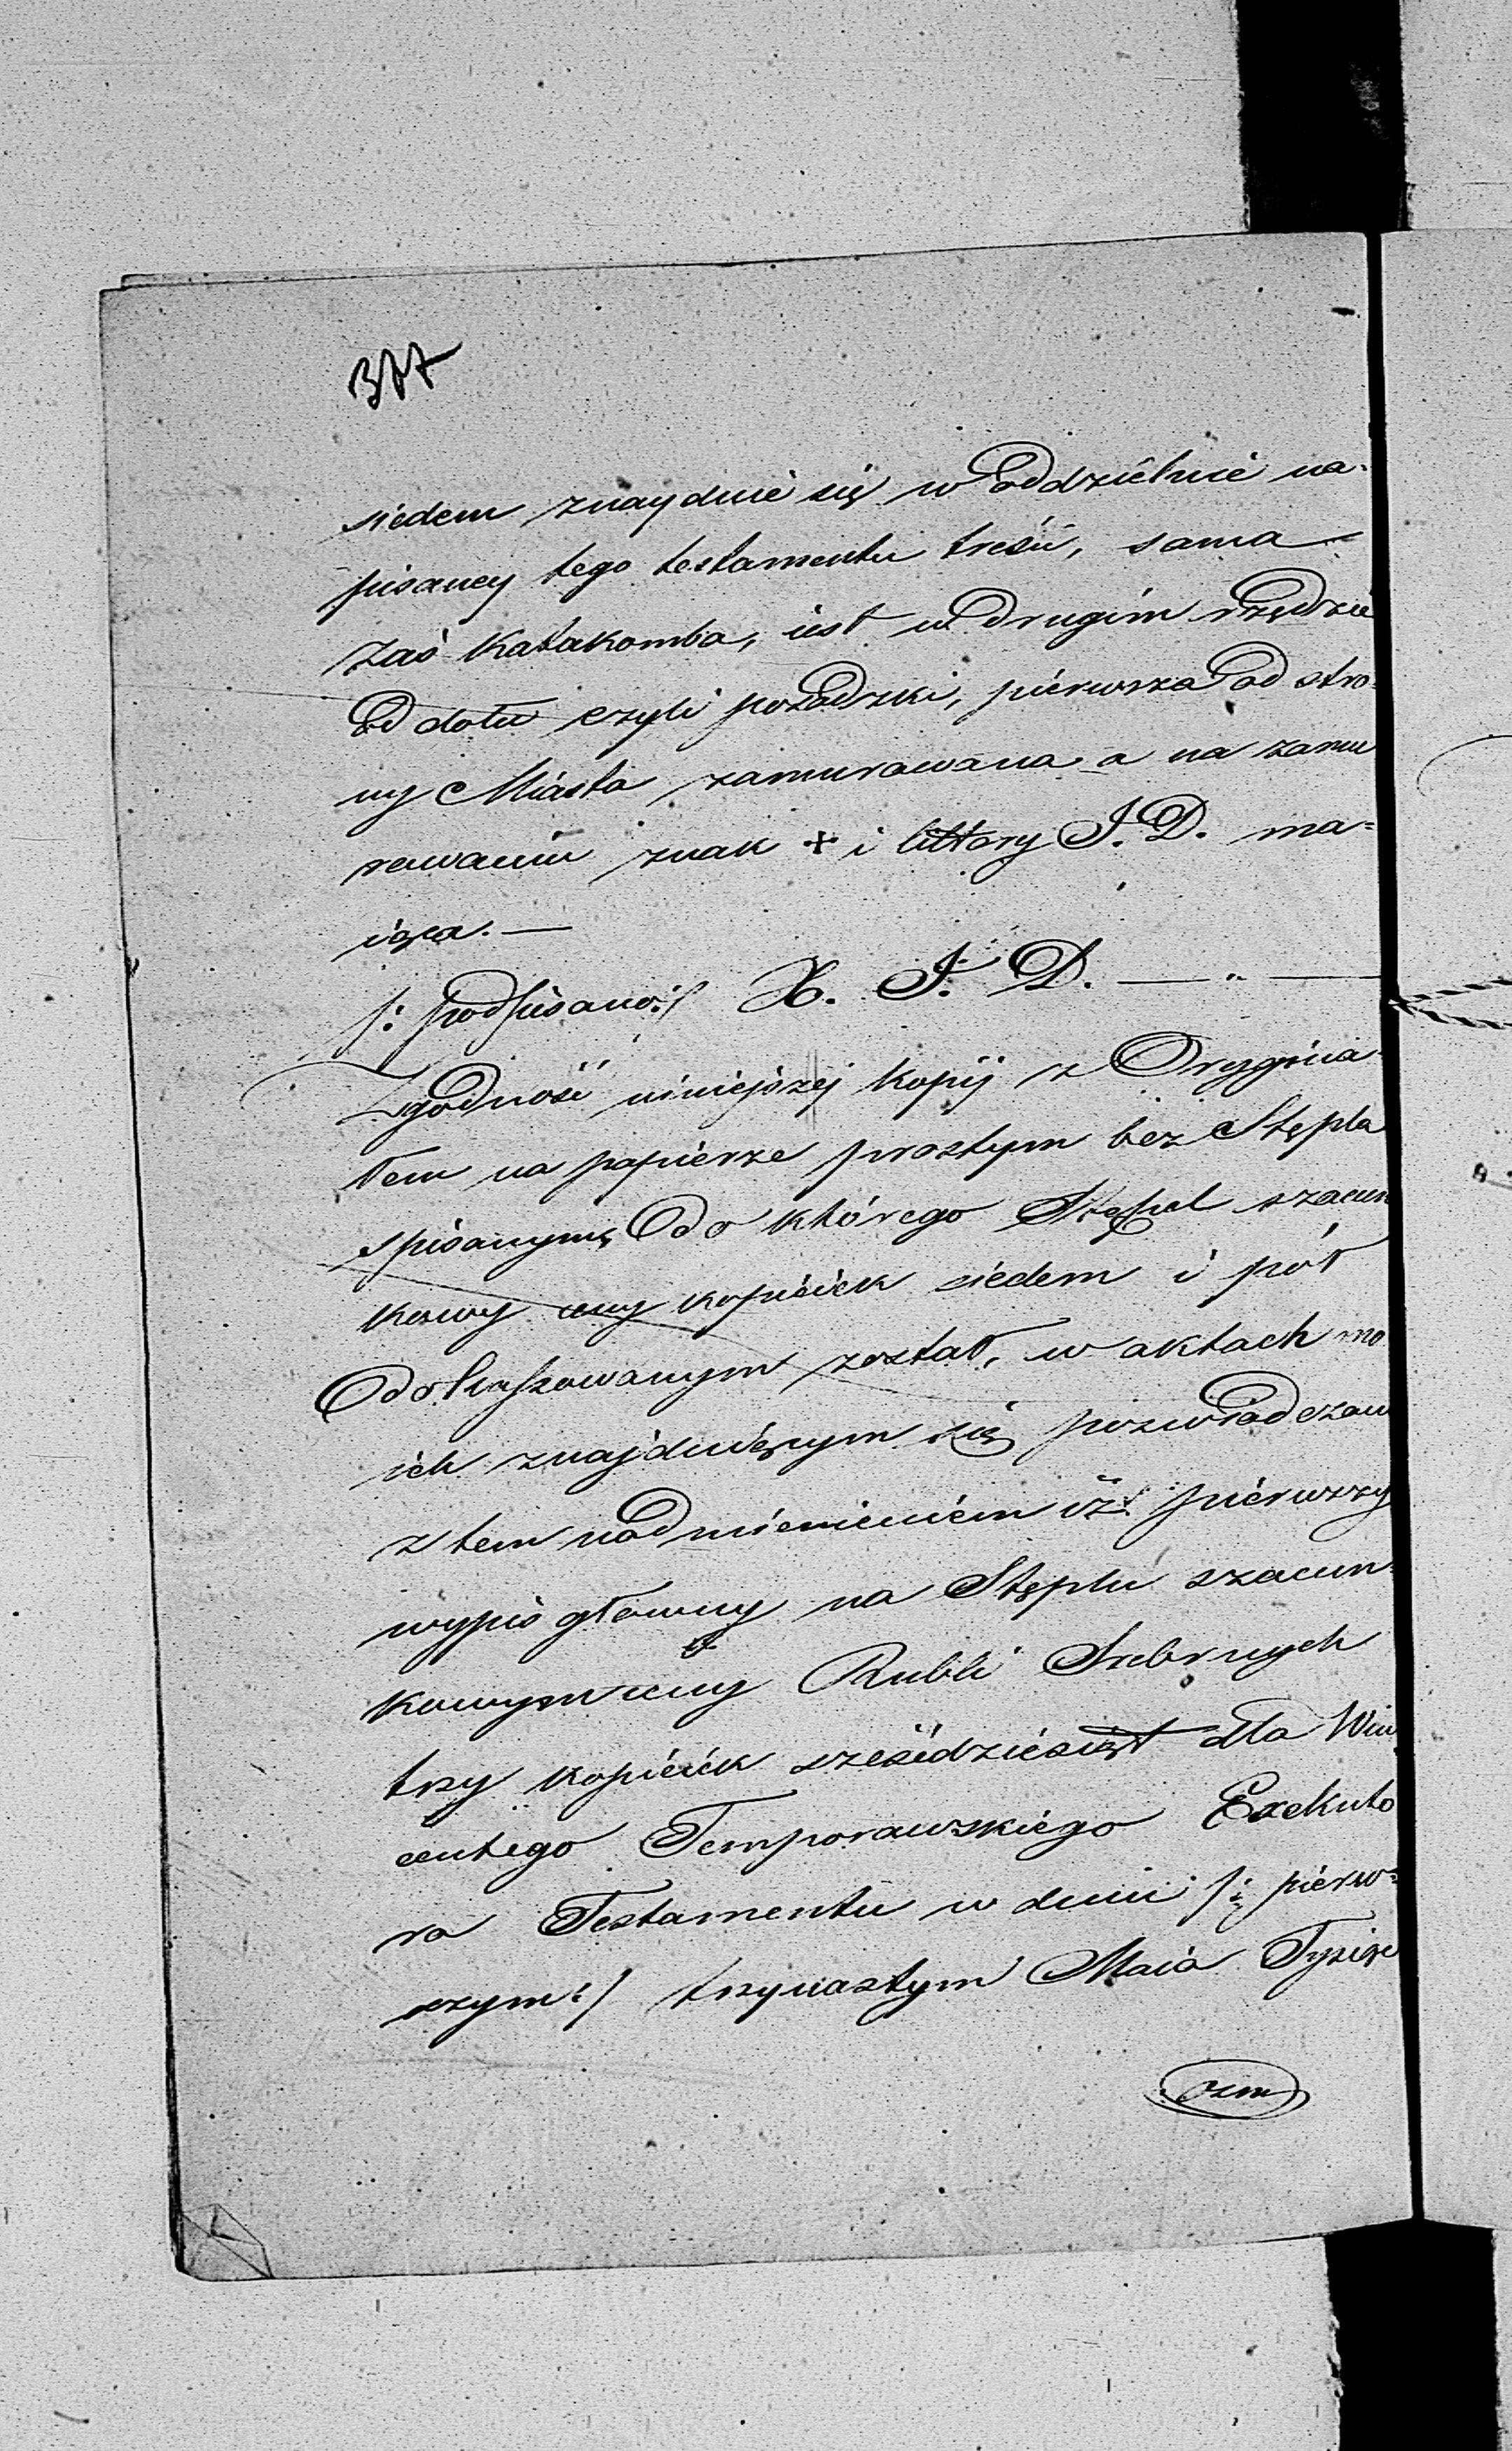 377
siedem znayduie się w oddzielnie na-
pisaney tego testamentu treści, sama
zaś Katakomba, iest w drugim rzędzie
od dołu czyli posadzki, pierwsza od stro-
ny Miasta zamurowana a na zamu
rowaniu znak + i littery J. D. ma=
iąca. —
/: podpisano:/ X. J. D. — " —
Zgodność niniejszej kopij z Orygina-
łem na papierze prostym bez Stępla
spisanym, do którego Stępel szacun
kowy ceny kopieiek siedem i pół
dokassowanym został, w aktach mo
ich znajduiącym się poświadczam
z tem nadmienieniem iż pierwszy
wypis główny na Stęplu szacun-
kowym ceny Rubli Srebrnych
trzy kopieiek sześćdziesiąt dla Win
centego Temporawskiego Exekuto
ra Testamentu w dniu /: pierw=
szym:/ trzynastym Maia Tysiąc